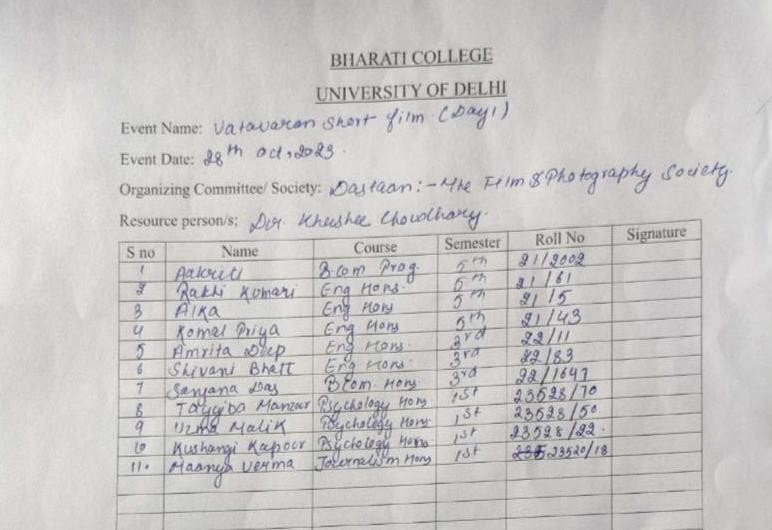 BHARATI COLLEGE
UNIVERSITY OF DELHI
Event Name: Vatavaran Short film (Day 1)
Event Date: 28th Oct, 2023.
Organizing Committee/ Society: Dastaan:- The Film & Photography Society.
Resource person/s; Dir. Khushee Choudhary.
S no Name Course Semester Roll No Signature
1 Aakriti B.com Prog. 5th 21/2002
2 Rakhi Kumari Eng Hons. 5th 21/61
3 Alka Eng Hons 5th 21/5
4 Komal Priya Eng Hons 5th 21/43
5 Amrita Deep Eng Hons. 3rd 22/11
6 Shivani Bhatt Eng Hons. 3rd 22/83
7 Sanjana Das B.com. Hons. 3rd 22/1647
8 Tayyiba Manzoor Psychology Hons 1st 23528/70
9 Uzma Malik Psychology Hons 1st 23528/50
10 Kushangi Kapoor Psychology Hons 1st 23528/22.
11. Maanya Verma Journalism Hons 1st 23520/18